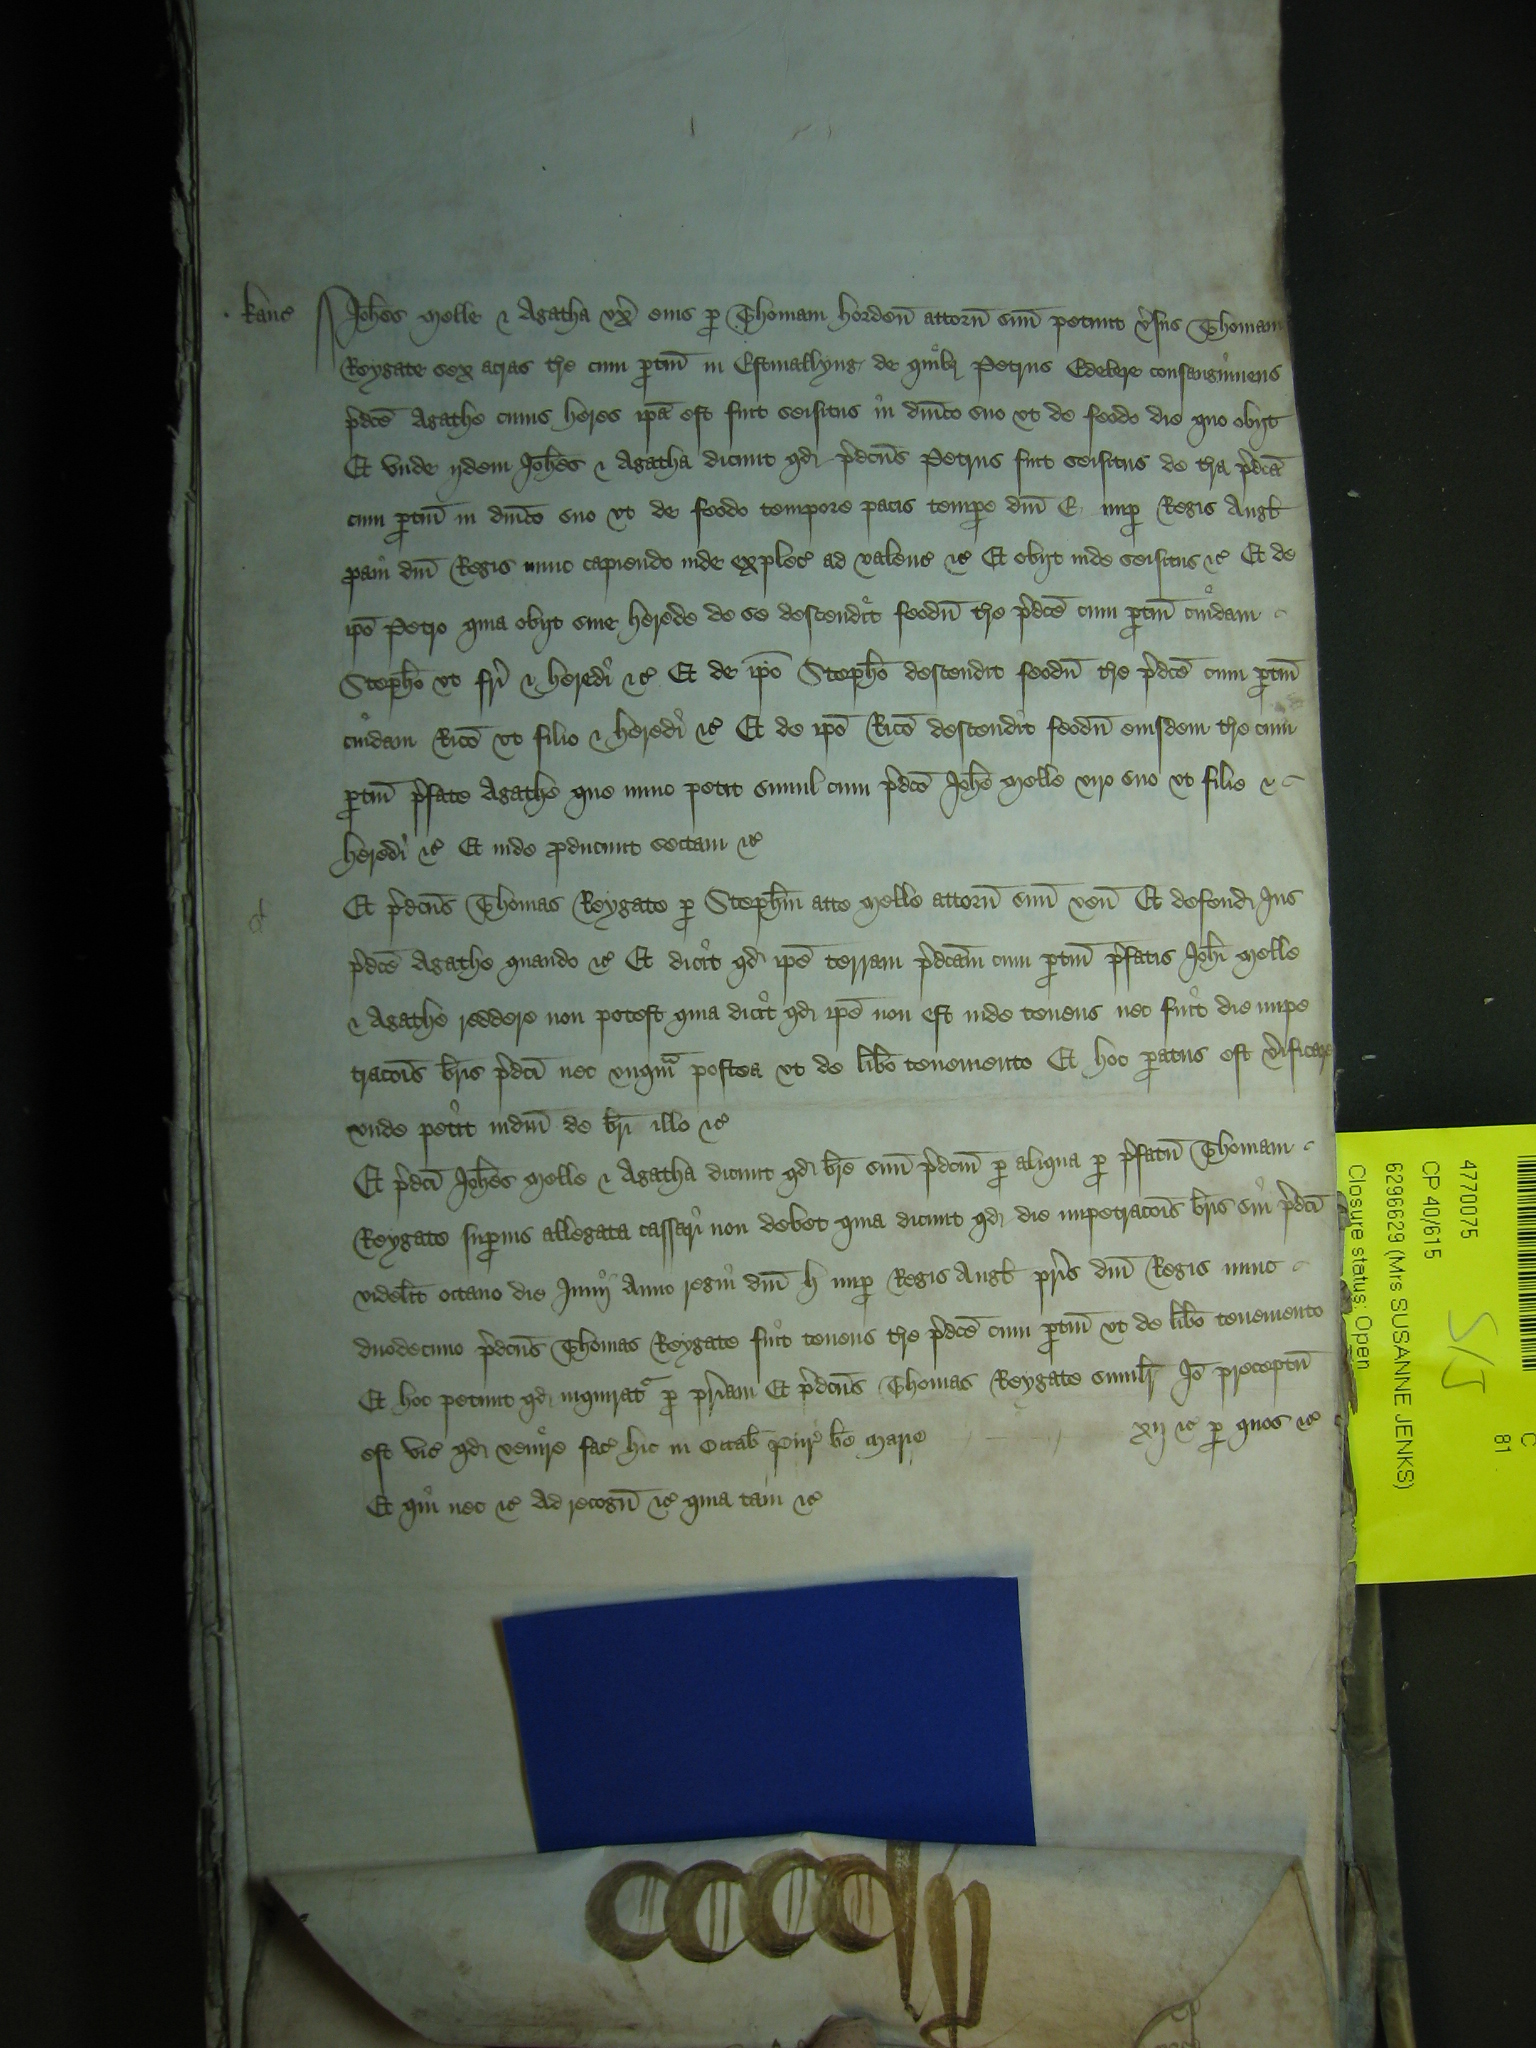 kanc̄ Joh̄es Melle & Agatha vx̄ eius p̱ Thomam horden̄ attorn̄ suū petunt v̄sus Thomam
Reygate sex acras tr̄e cum p̱tin̄ in Estmallyng de quib; Petrus Edelere consanguineus
p̄dc̄e Agathe cuius heres ip̄a est fuit seisitus in dn̄ico suo vt de feodo die quo obijt
Et vnde ijdem Joh̄es & Agatha dicunt qd̄ p̄dcūs Petrus fuit seisitus de tr̄a p̄dc̄a
cum p̱tin̄ in dn̄ico suo vt de feodo tempore pacis tempore dn̄i E nup̱ Regis Angł
p̱aui dn̄i Regis nunc capiendo inde explec̄ ad valenc̄ &c̄ Et obijt inde seisitus &c̄ Et de
ip̄o Petro quia obijt sine herede de se descendit feodū tr̄e p̄dc̄e cum p̱tin̄ cuidam
Steph̄o vt fr̄i & heredi &c̄ Et de ip̄o Steph̄o descendit feodū tr̄e p̄dc̄e cum p̱tin̄
cuidam Ric̄o vt filio & heredi &c̄ Et de ip̄o Ric̄o descendit feodū eiusdem tr̄e cum
p̱tin̄ p̄fate Agathe que nunc petit simul cum p̄dc̄o Joh̄e Melle viro suo vt filie &
heredi &c̄ Et inde p̱ducunt sectam &c̄
Et p̄dcūs Thomas Reygate p̱ Steph̄m atte Melle attorn̄ suū ven̄ Et defend̄ Jus
p̄dc̄e Agathe quando &c̄ Et dicit qd̄ ip̄e terram p̄dc̄am cum p̱tin̄ p̄fatis Joh̄i Melle
& Agathe reddere non potest quia dicit qd̄ ip̄e non est inde tenens nec fuit die impe
trac̄ois br̄is p̄dc̄i nec vnqm̄ postea vt de lib̄o tenemento Et hoc p̱atus est v̄ificare
vnde petit iudm̄ de br̄i illo &c̄
Et p̄dc̄i Joh̄es Melle & Agatha dicunt qd̄ br̄e suū p̄dcm̄ p̱ aliqua p̱ p̄fatū Thomam
Reygate sup̱ius allegata cassari non debet quia dicunt qd̄ die impetrac̄ois br̄is sui p̄dc̄i
videlt̄ octauo die Junij Anno regni dn̄i H nup̱ Regis Angł pr̄is dn̄i Regis nunc
duodecimo p̄dcūs Thomas Reygate fuit tenens tr̄e p̄dc̄e cum p̱tin̄ vt de lib̄o tenemento
Et hoc petunt qd̄ inquirat̄ p̱ pr̄iam Et p̄dcūs Thomas Reygate similr̄ Jō preceptū
est vic̄ qd̄ venire fac̄ hic in Octab̄ Pur̄ be Marie xij &c̄ p̱ quos &c̄
Et qui nec &c̄ Ad recogn̄ &c̄ quia tam &c̄
4770075
CP 40/615
6296629 (Mrs SUSANNE JENKS)
Closure status: Open
C
81
S/J